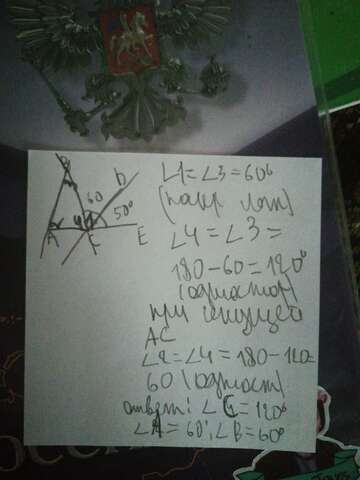 B
D
60
50°
A
4
C
E
∠1=∠3=60°
(накр леж)
∠4=∠3=
180-60=120°
(одност)
при секущей
AC
∠2=∠4=180-120=
60 (одност)
ответ: ∠C=120°
∠A=60°; ∠B=60°